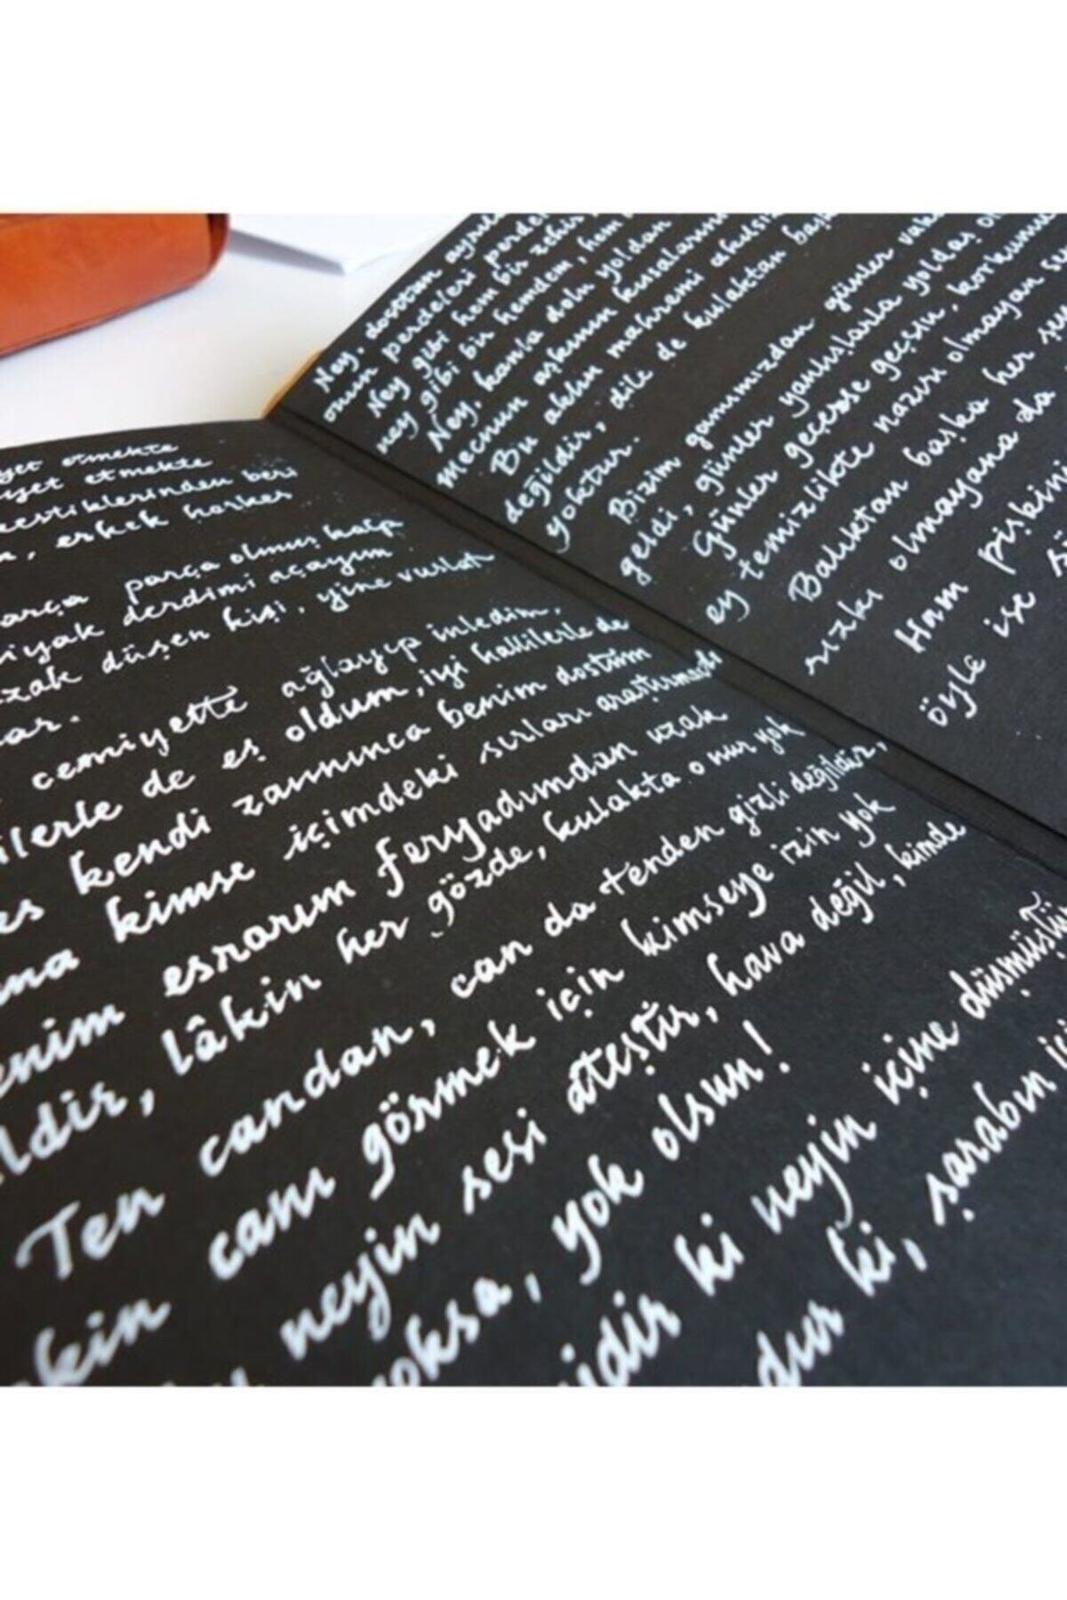 etmekte
etmekte
kestiklerinden beri
erkek herkes
parça olmuş kalp
derdimi açayım
düşen kişi, yine vuslat
cemiyette ağlayıp inledim,
de eş oldum, iyi hallilerle de
kendi zannınca benim dostum
kimse içimdeki sırları araştırmadı
esrarım feryadımdan uzak
lâkin her gözde, kulakta o nur yok
Ten candan, can da tenden gizli değildir,
canı görmek için kimseye izin yok
neyin sesi ateştir, hava değil, kimde
yok olsun!
ki neyin içine düşmüştür
ki, şarabın
Ney, dosttan
onun perdeleri
Ney gibi hem bir zehir
ney gibi bir hemdem, hem
Ney, kanla dolu yoldan
mecnun aşkının kıssalarını
Bu aklın mahremi akılsız
değildir, dile de kulaktan
yoktur.
Bizim gamımızdan günler
geldi, günler yanışlarla yoldaş
Günler geçerse geçsin, korkumuz
ey temizlikte naziri olmayan
Balıktan başka her şey
rızkı olmayana da
Ham pişkin
öyle ise